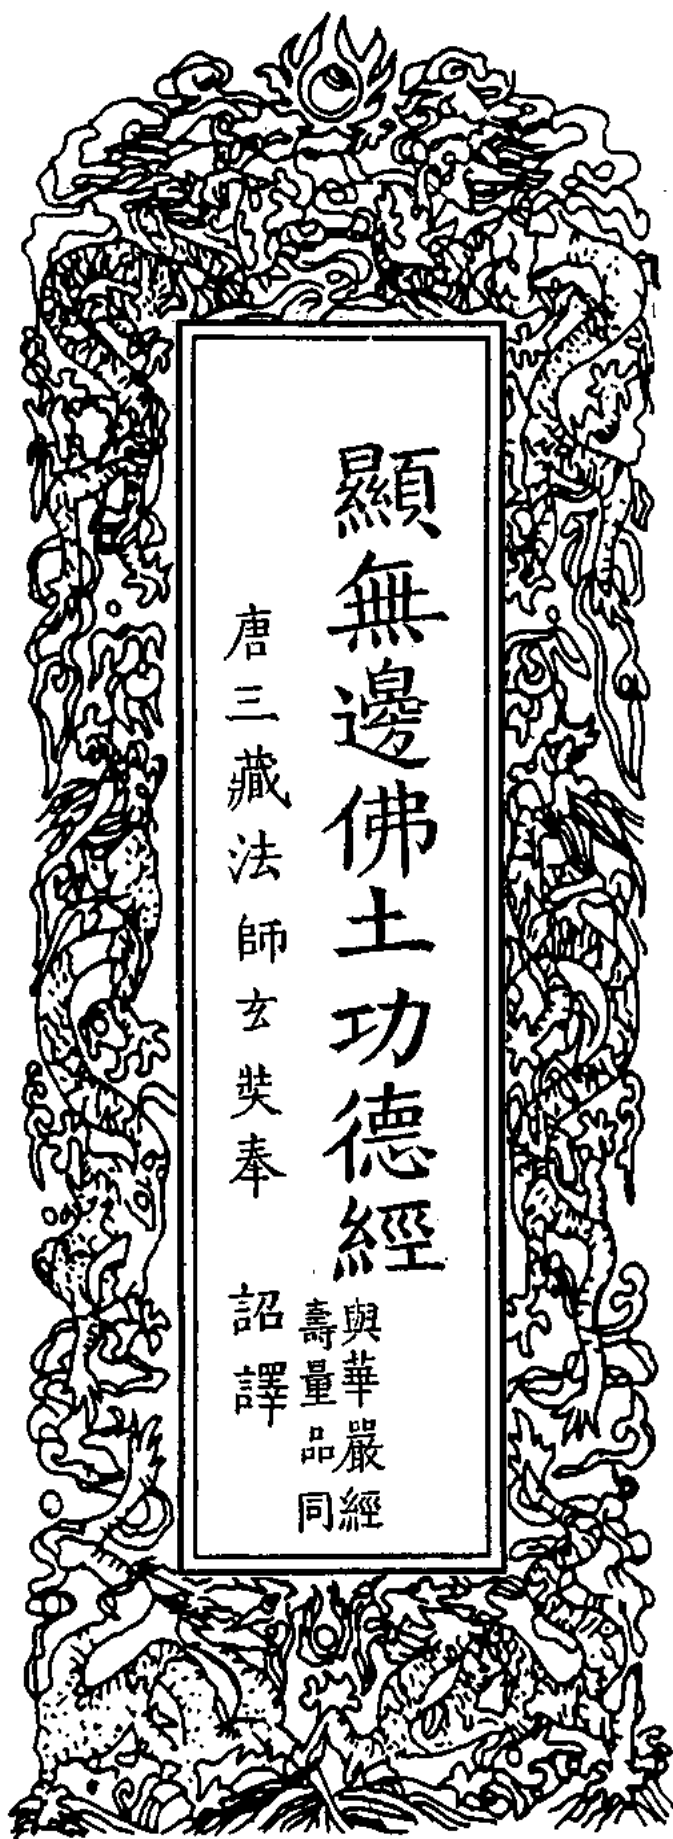 顯無邊佛土功德經
與華嚴經
壽量品同
唐三藏法師玄奘奉 詔譯